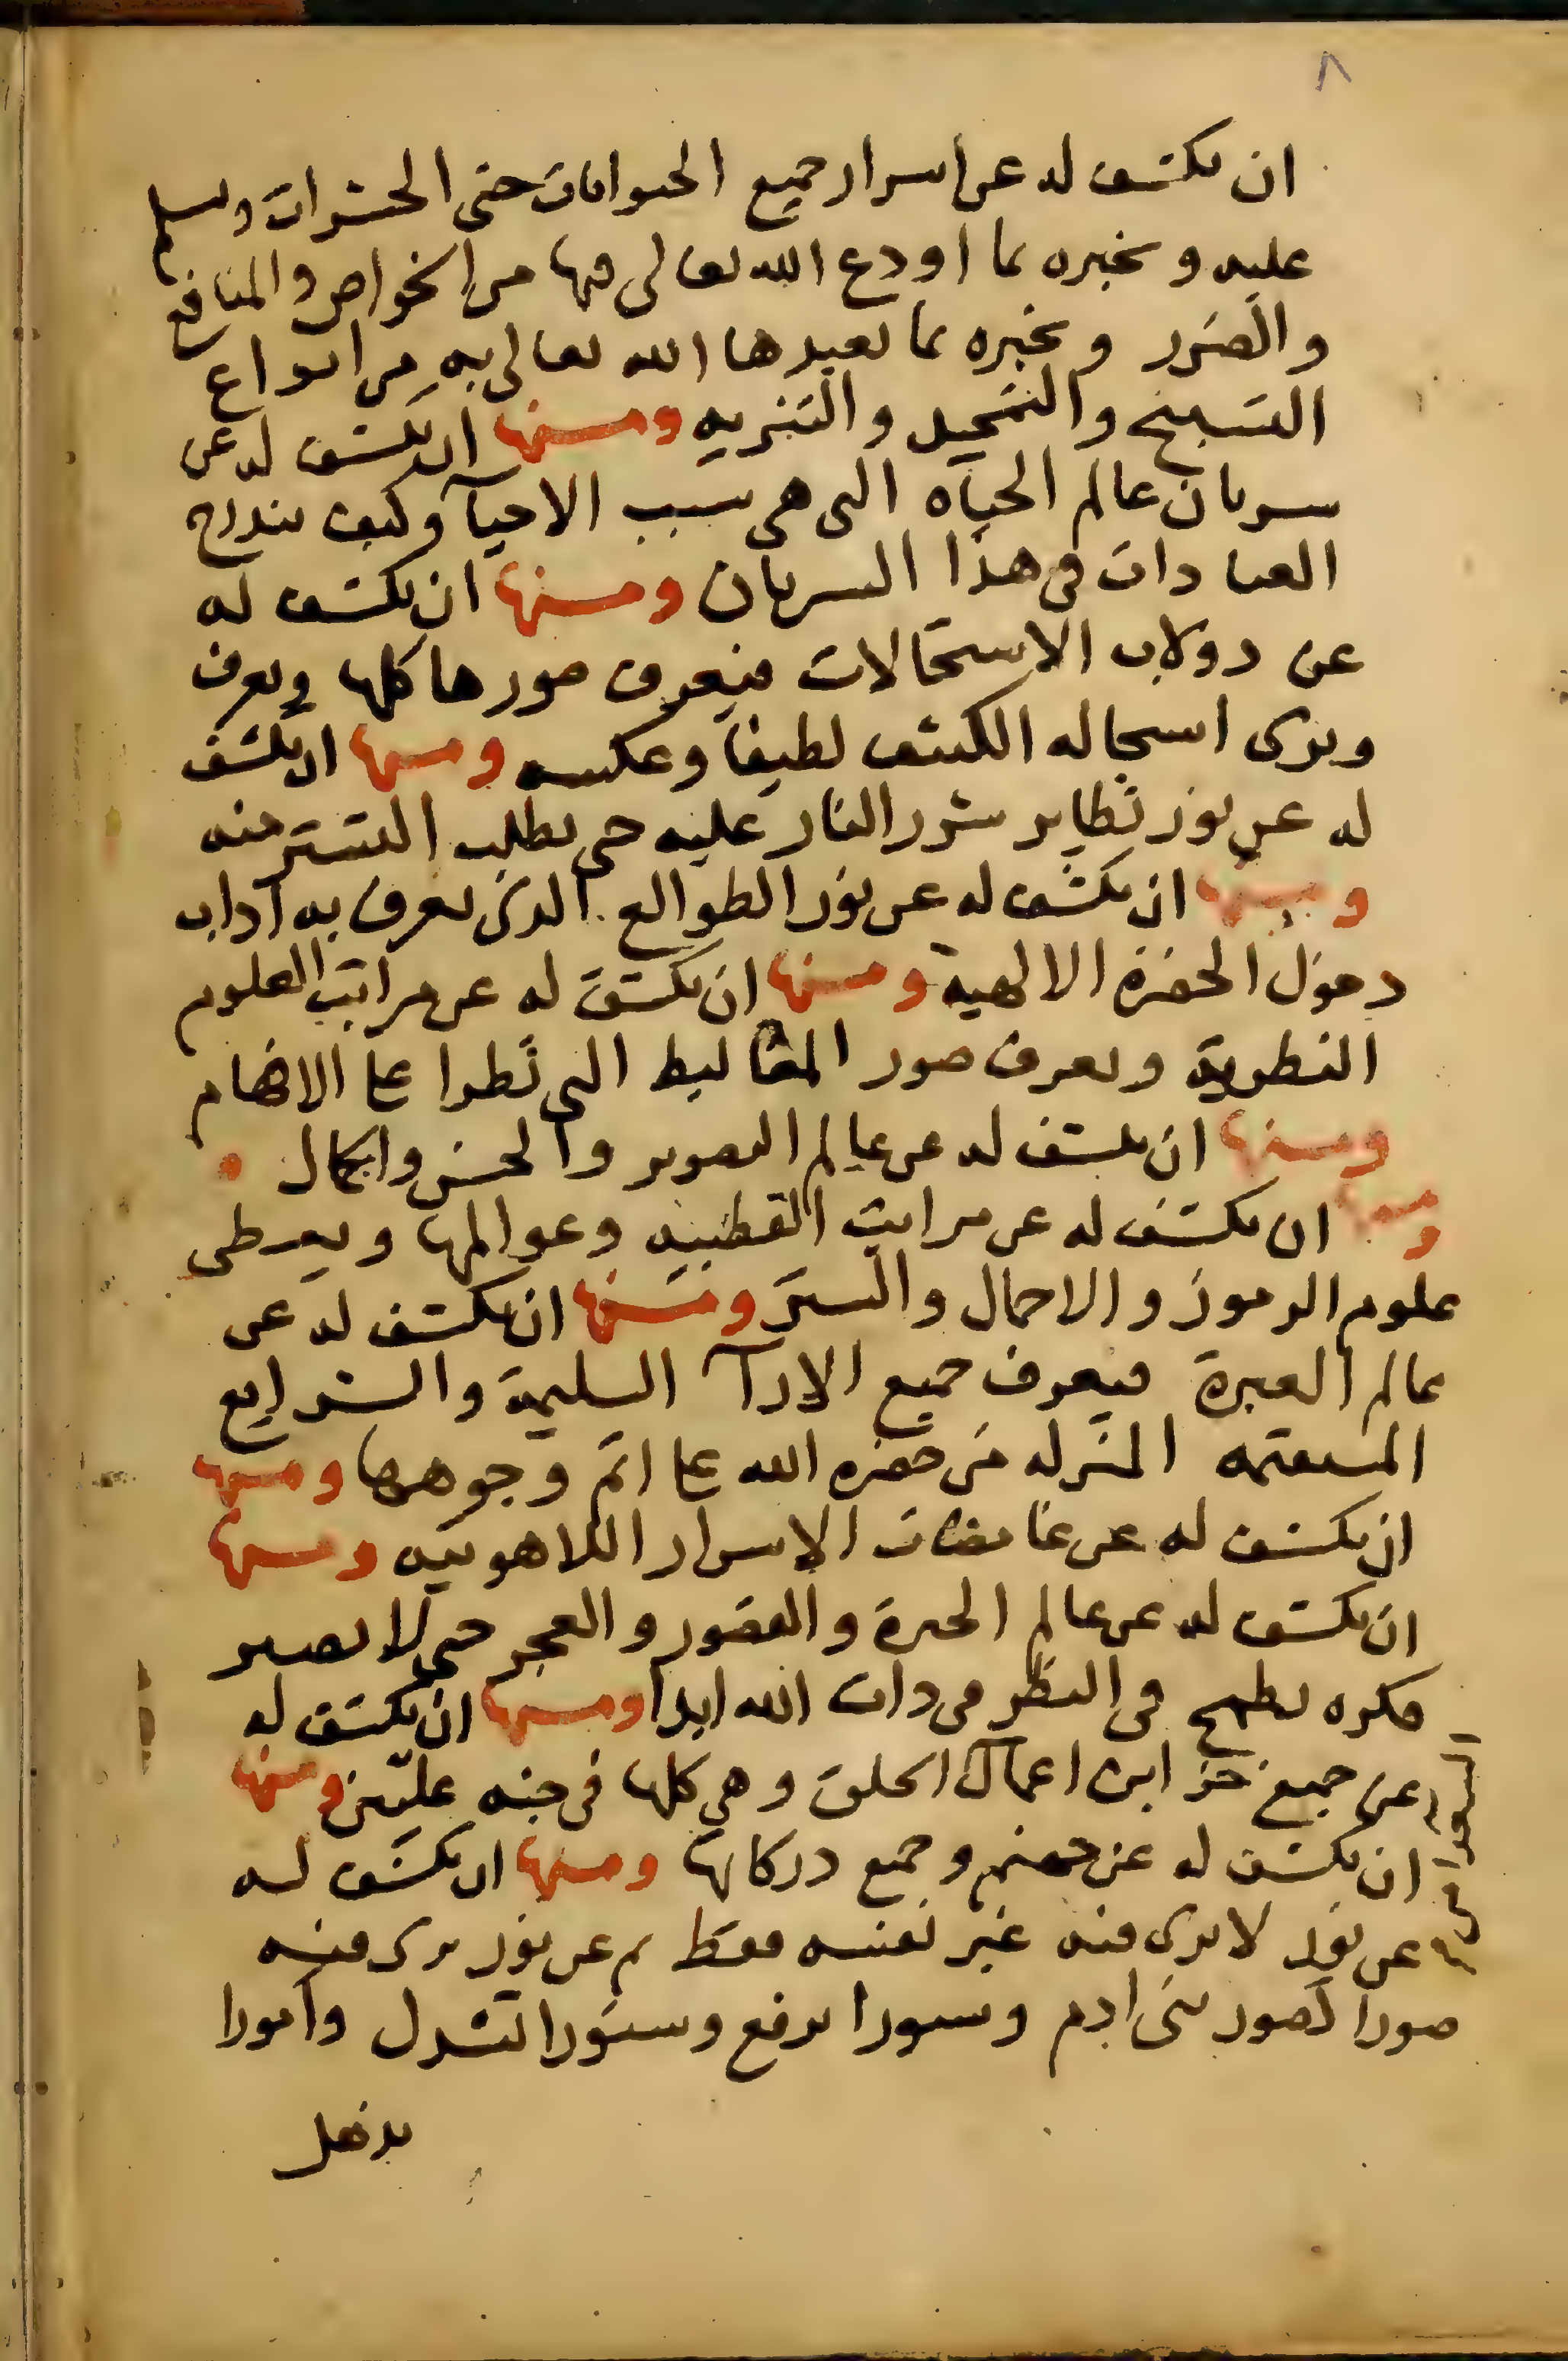 ٨
ان يكشف له عن اسرار جميع الحيوانات حتى الحشرات وتسلم
عليه وتخبره بما اودع الله تعالى فيها من الخواص والمنافع
والضرر وتخبره بما تعبدها الله تعالى به من انواع
التسبيح والتمجيد والتنزيه ومنها ان يكشف له عن
سريان عالم الحياه التى هى سبب الاحيآ وكيف تندرج
العبادات فى هذا السريان ومنها ان يكشف له
عن دولاب الاستحالات فيعرف صورها كلها ويعرف
ويرى استحاله الكثيف لطيفا وعكسه ومنها ان يكشف
له عن نور تطاير شرر النار عليه حتى يطلب التستر منه
ومنها ان يكشف له عن نور الطوالع الذى يعرف به آداب
دخول الحضرة الالهية ومنها ان يكشف له عن مراتب العلوم
النظرية ويعرف صور المغاليط التى تطرا على الافهام
ومنها ان يكشف له عن عالم التصوير والحسن والجمال
ومنها ان يكشف له عن مراتب القطبيه وعوالمها ويعطى
علوم الرموز والاجمال والستر ومنها ان يكشف له عن
عالم الغيرة فيعرف جميع الارآ السليمة والشرايع
المستقيمه المنزله من حضره الله على اتم وجوهها ومنها
ان يكشف له عن غامضات الاسرار اللاهوتيه ومنها
ان يكشف له عن عالم الحيرة والقصور والعجز حتى لا يصير
فكره يطمح فى النظر فى ذات الله ابدا ومنها ان يكشف له
عن جميع خزاين اعمال الخلق وهى كلها فى جنه عليين ومنها
ان يكشف له عن جهنم وجميع دركاتها ومنها ان يكشف له
عن نور لا يرى فيه غير نفسه فقط ثم عن نور يرى فيه
صورا كصور بنى ادم وستورا ترفع وستورا تسدل وامورا
يذهل